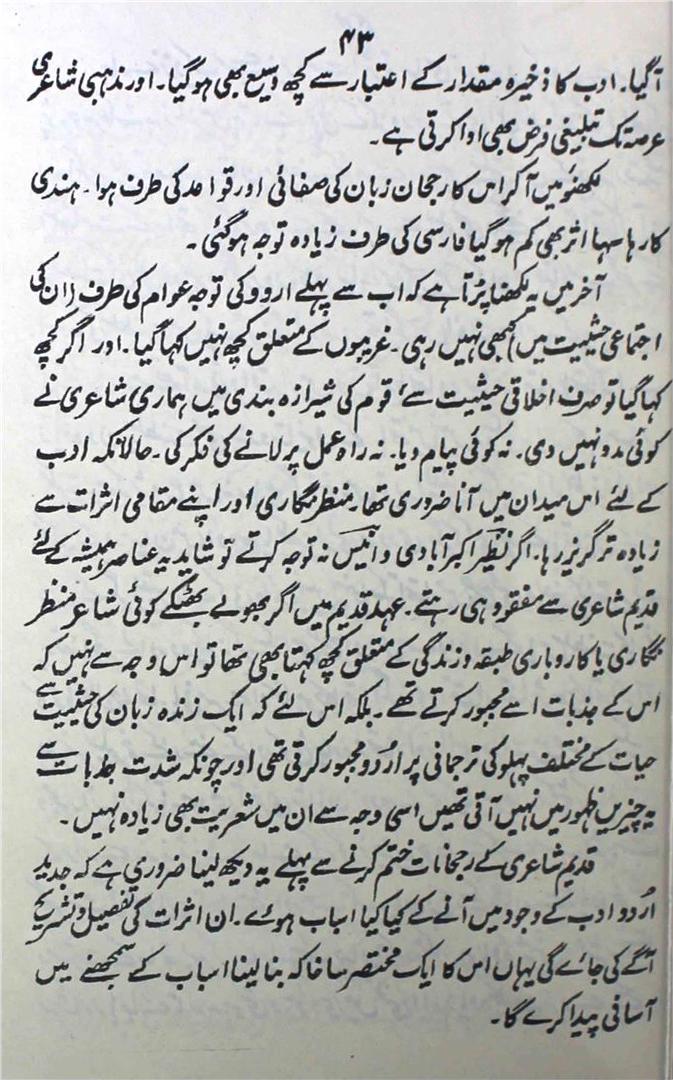 ۴۳
آگیا۔ ادب کا ذخیرہ مقدار کے اعتبار سے کچھ وسیع بھی ہو گیا۔ اور مذہبی شاعری
عرصہ تک تبلیغی فرض بھی ادا کرتی ہے۔
لکھنؤ میں آکر اس کا رجحان زبان کی صفائی اور قواعد کی طرف ہوا۔ ہندی
کا رہا سہا اثر بھی کم ہو گیا فارسی کی طرف زیادہ توجہ ہو گئی۔
آخر میں یہ لکھنا پڑتا ہے کہ اب سے پہلے اردو کی توجہ عوام کی طرف (ان کی
اجتماعی حیثیت میں) کبھی نہیں رہی۔ غریبوں کے متعلق کچھ نہیں کہا گیا۔ اور اگر کچھ
کہا گیا تو صرف اخلاقی حیثیت سے، قوم کی شیرازہ بندی میں ہماری شاعری نے
کوئی مدد نہیں دی۔ نہ کوئی پیام دیا۔ نہ راہ عمل پر لانے کی فکر کی۔ حالانکہ ادب
کے لئے اس میدان میں آنا ضروری تھا۔ منظر نگاری اور اپنے مقامی اثرات سے
زیادہ تر گریز رہا۔ اگر نظیر اکبر آبادی و انیس نہ توجہ کرتے تو شاید یہ عناصر ہمیشہ کے لئے
قدیم شاعری سے مفقود ہی رہتے۔ عہد قدیم میں اگر بھولے بھٹکے کوئی شاعر منظر
نگاری یا کاروباری طبقہ و زندگی کے متعلق کچھ کہتا بھی تھا تو اس وجہ سے نہیں کہ
اس کے جذبات اسے مجبور کرتے تھے۔ بلکہ اس لئے کہ ایک زندہ زبان کی حیثیت سے
حیات کے مختلف پہلو کی ترجمانی پر اُردو مجبور کرتی تھی اور چونکہ شدت جذبات سے
یہ چیزیں ظہور میں نہیں آتی تھیں اسی وجہ سے ان میں شعریت بھی زیادہ نہیں۔
قدیم شاعری کے رجحانات ختم کرنے سے پہلے یہ دیکھ لینا ضروری ہے کہ جدید
اُردو ادب کے وجود میں آنے کے کیا کیا اسباب ہوئے۔ ان اثرات کی تفصیل و تشریح
آگے کی جائے گی یہاں اس کا ایک مختصر سا خاکہ بنا لینا اسباب کے سمجھنے میں
آسانی پیدا کرے گا۔